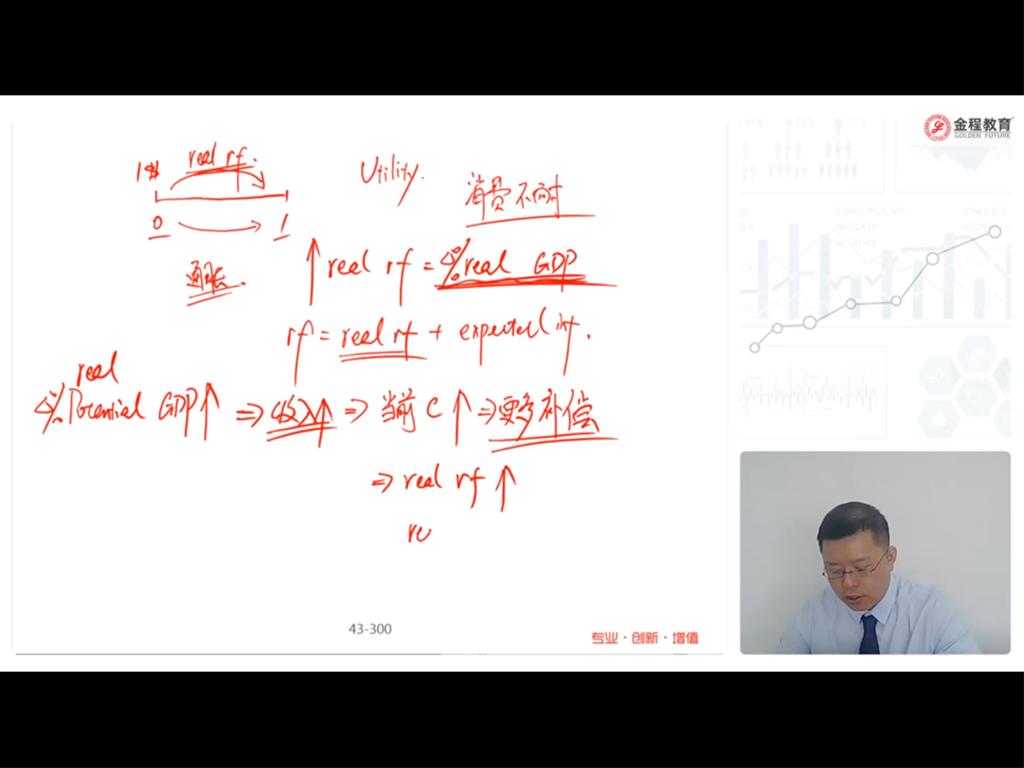 金程教育
GOLDEN FUTURE
1$ real rf. Utility.
消费不耐
0 1
通胀.
↑real rf = Δ% real GDP
rf = real rf + expected inf.
real
Δ% Potential GDP↑ ⇒ 收入↑ ⇒ 当前 C↑ ⇒ 更多补偿
⇒ real rf ↑
re
43-300
专业·创新·增值